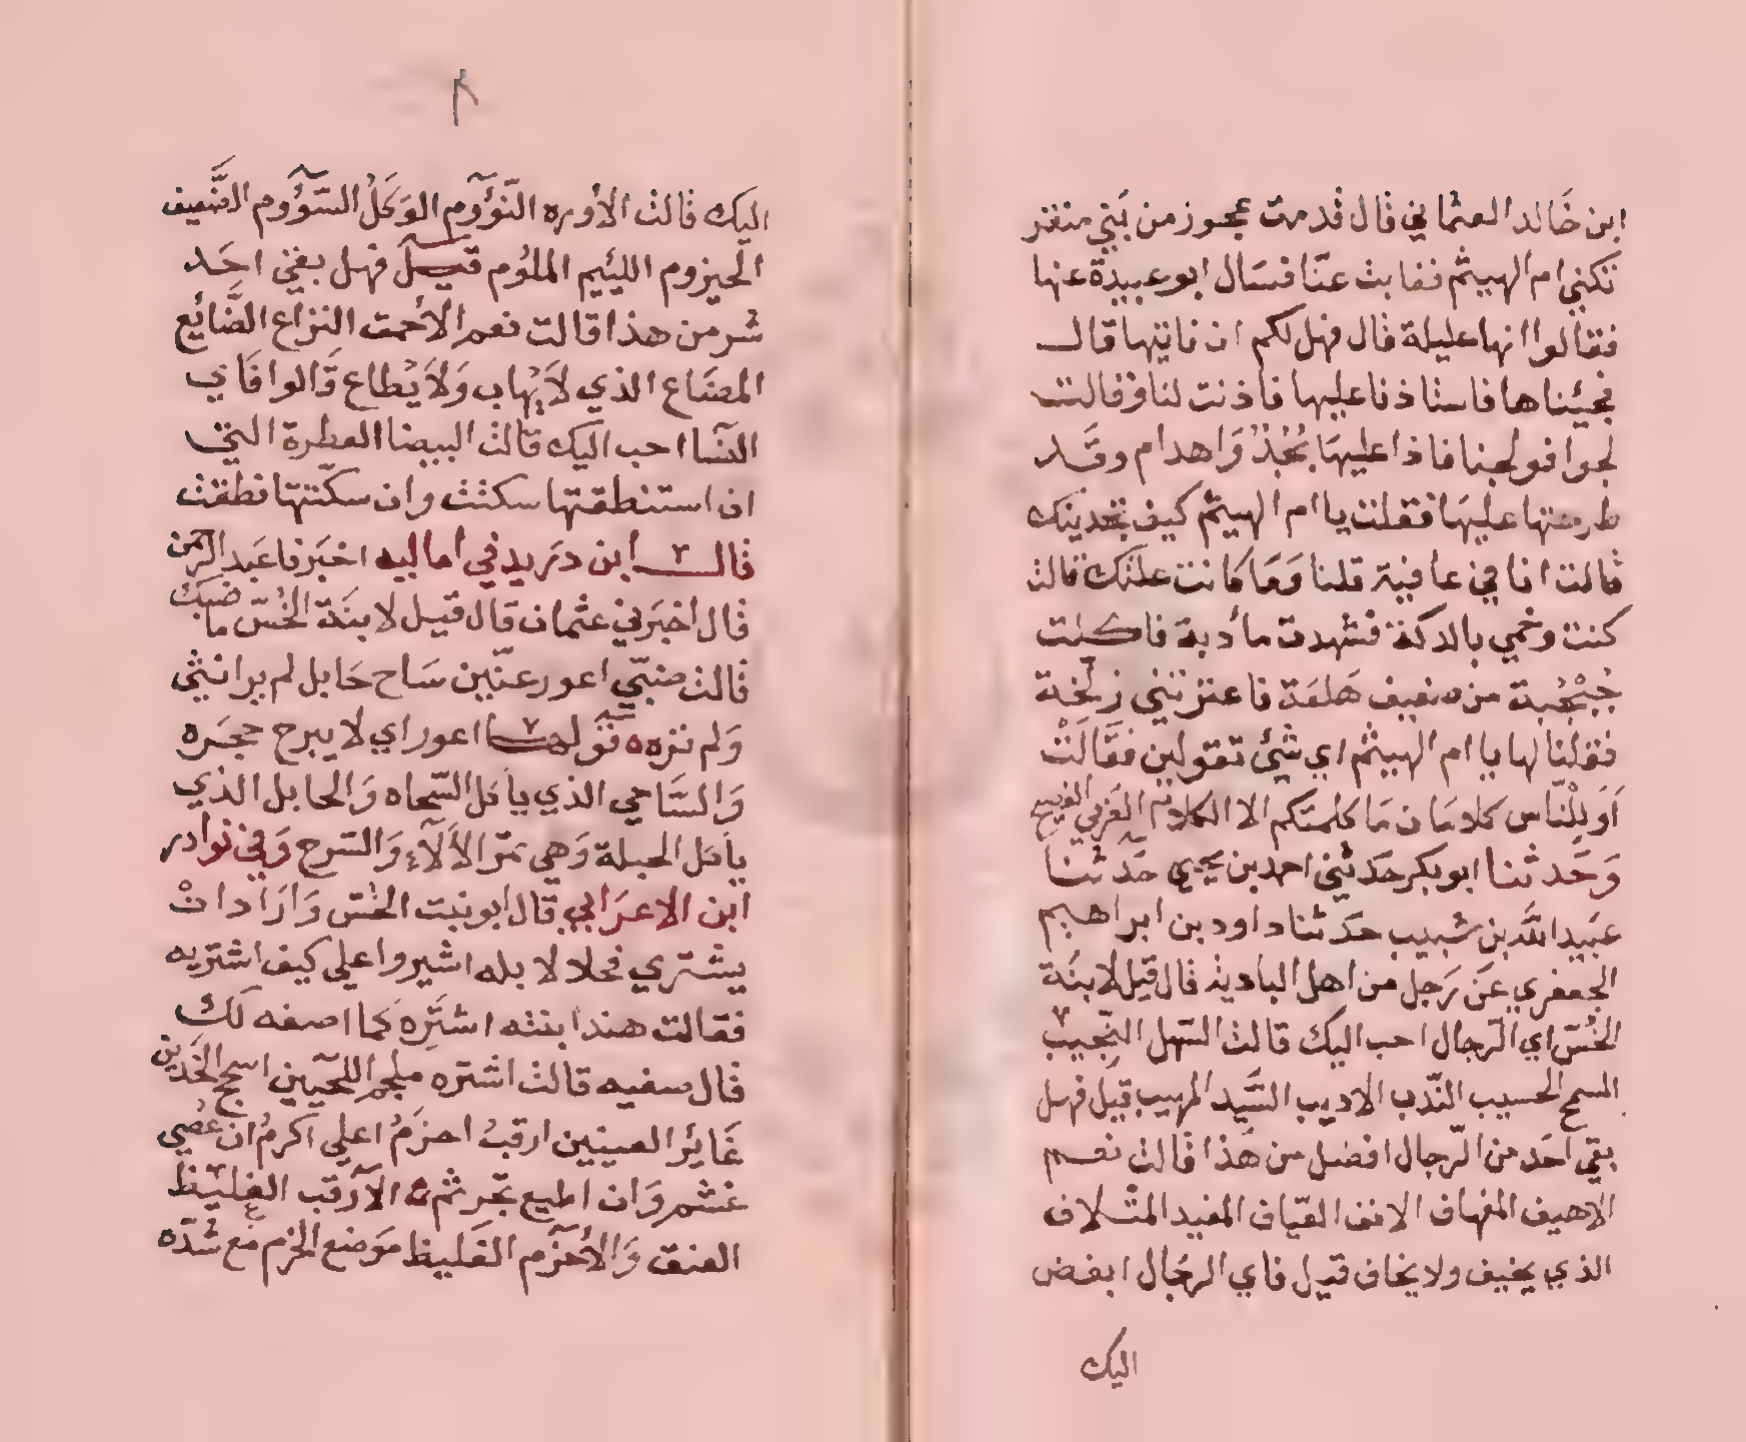 ابن خَالد العثماني قال قدمت عجوز من بَني منقر
تكني ام الهيثم فغابت عنّا فسَال ابو عبيدة عنها
فقالوا انها عليلة قال فهل لكم ان ناتيها قال
فجيئناها فاستاذنا عليها فاذنت لنا وقالت
لجوا فولجنا فاذا عليهَا بُجُدٌ وَاهدام وقَد
طرحتها عليهَا فقلت يا ام الهيثم كيف تجدينك
قالت انا في عافية قلنا وَمَا كانت علتك قالت
كنت وحمي بالدكة فشهدت مأدبة فاكلت
جُبْجُبة من صفيف هَلعَة فاعترتني زلخة
فقلنَا لها يا ام الهيثم اي شئ تقولين فقَالَتْ
اَوَ لِلْنّاس كلامَان مَا كلمتكم الا الكلام العَرَبي الفصيح
وَحَدثنا ابو بكر حَدثني احمد بن يحيى حَدثنا
عبَيد اللّه بن شبيب حَدثنا داود بن ابراهيم
الجعفري عَن رَجل من اهل البادية قال قيل لابنَة
الخُسّ اي الرّجال احب اليك قالت السّهل النّجيب
السمح الحسيب النّدب الاديب السَّيد المهيب قيل فهل
بقي احَد من الرّجال افضل من هَذا قالت نعم
الاهيف الهفهاف الانف العيّاف المفيد المتلاف
الذي يخيف ولا يخاف قيل فاي الرجَال ابغض
اليك
٨
اليك قالت الأوره النّؤوم الوَكَلُ السّؤوم الضَّعيف
الحيزوم اللئيم الملُوم قيل فهل بقي احَد
شر من هذا قالت نعم الأحمق النزاع الضَّائع
المضَاع الذي لاَ يُهاب وَلاَ يُطاع قَالوا فَاي
النّسا احب اليك قالت البيضا العطرة التي
ان استنطقتها سكتت وان سكّتتها نطقت
قال ابن دريد في أماليه اخبَرنا عَبد الرّحمن
قال اخبَرني عثمان قال قيل لابنَة الخُسّ ما ضبّك
قالت ضبّي اعور عنّين سَاح حَابل لم ير انثى
وَلم تره قولها اعور اي لا يبرح حجَره
وَالسَّاحي الذي ياكل السّحاه وَالحابل الذي
ياكل الحبلة وَهي ثمَر الألآء وَالسّرح وَفي نوادر
ابن الاعرَابي قال ابو بنت الخسّ وَارَاد انْ
يشتري فحلا لابله اشيروا علي كيف اشتريه
فقالت هند ابنته اشترِه كما اصفه لَك
قال صفيه قالت اشتره ملجم اللّحيين اسجح الخَدين
غَائِر العينين ارقبُ احزَمُ اعلي اكرمُ ان عُصي
غشم وَان اطيع تجَرثم الآرقب الغليظ
العنق وَالأحزَم الغَليظ مَوضع الحزم مَع شدّه